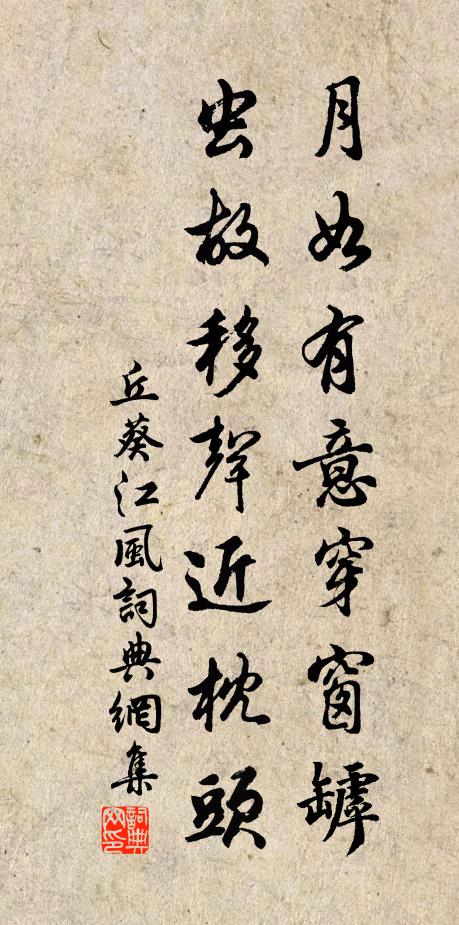 月如有意穿窗罅
虫故移聲近枕頭
丘葵江風詞典網集
詞典網印